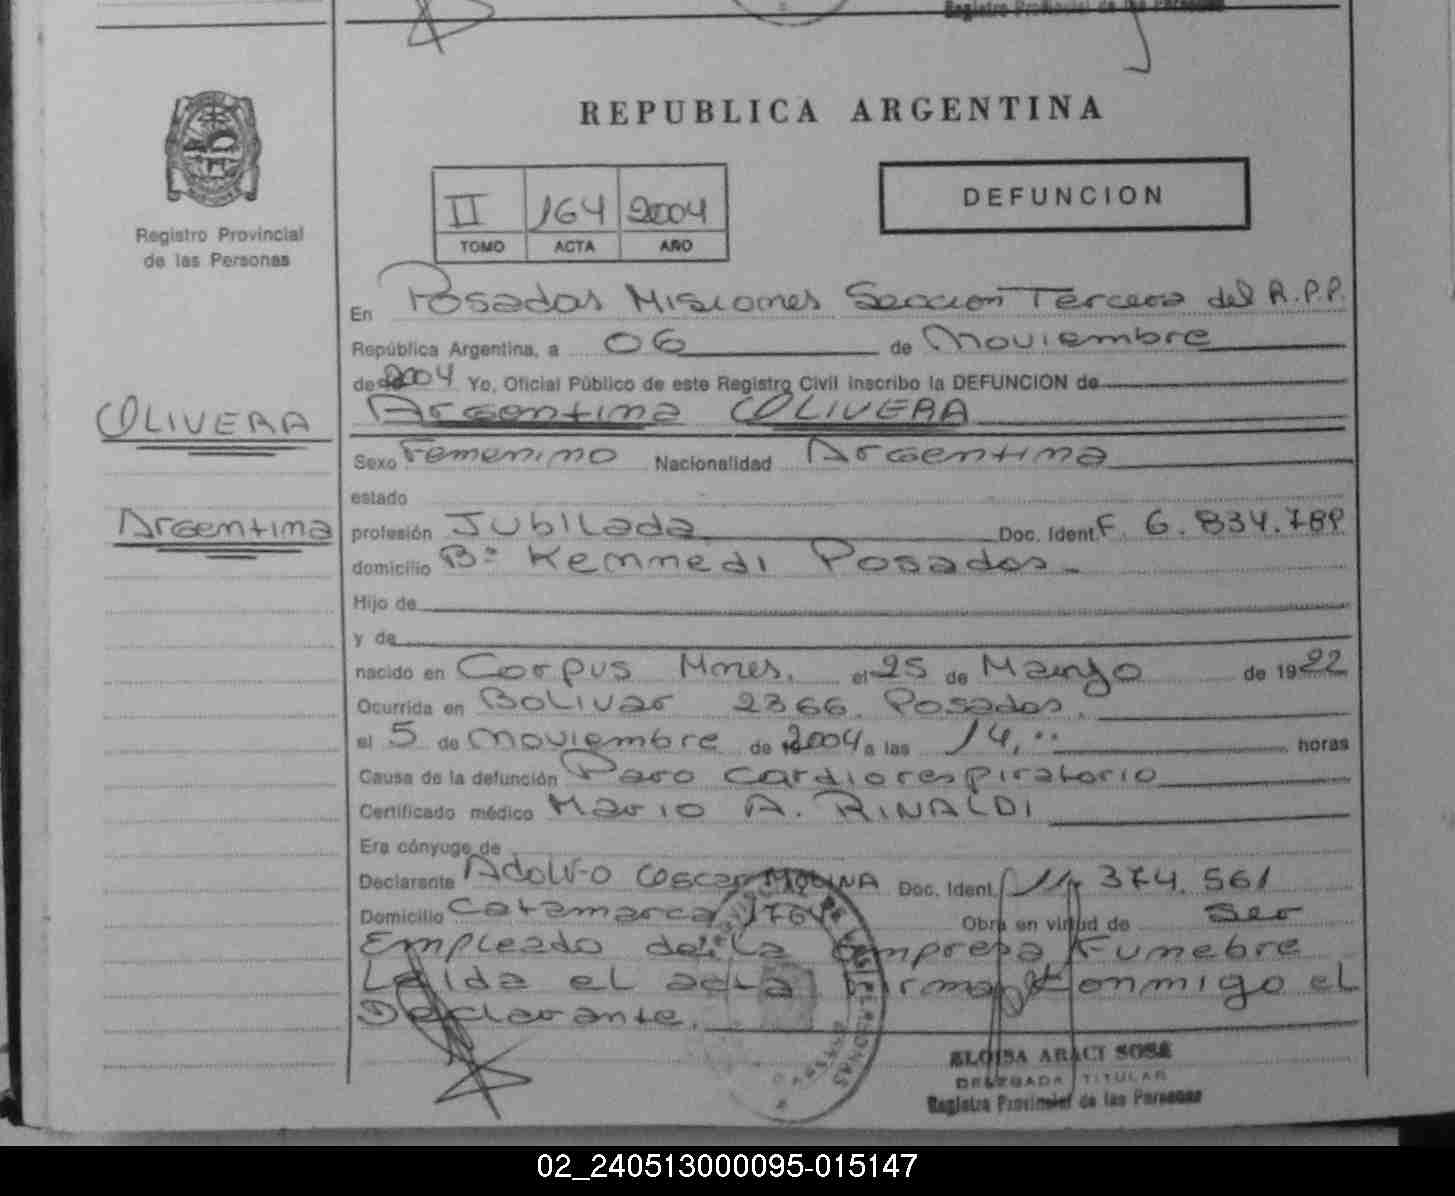 Registro Provincial de las Personas
REPUBLICA ARGENTINA
Registro Provincial
de las Personas
II 164 2004
TOMO ACTA AÑO
DEFUNCION
En Posadas Misiones Seccion Tercera del R.P.P.
República Argentina, a 06 de Noviembre
de 2004 Yo, Oficial Público de este Registro Civil inscribo la DEFUNCION de
OLIVERA
Argentina
Argentina OLIVERA
Sexo Femenino Nacionalidad Argentina
estado
profesión Jubilada Doc. Ident. F. 6.834.789
domicilio B° Kennedi Posadas.
Hijo de
y de
nacido en Corpus Mnes. el 25 de Marzo de 1922
Ocurrida en Bolivar 2366. Posadas.
el 5 de Noviembre de 2004 a las 14,.. horas
Causa de la defunción Paro cardiorespiratorio
Certificado médico Mario A. RINALDI
Era cónyuge de
Declarante Adolfo Oscar MOLINA Doc. Ident. 14.374.561
Domicilio Catamarca 1764 Obra en virtud de Ser
Empleado de la Empresa Funebre
Leida el acta firma conmigo el
Declarante.
ELOISA ARACI SOSA
DELEGADA TITULAR
Registro Provincial de las Personas
02_240513000095-015147